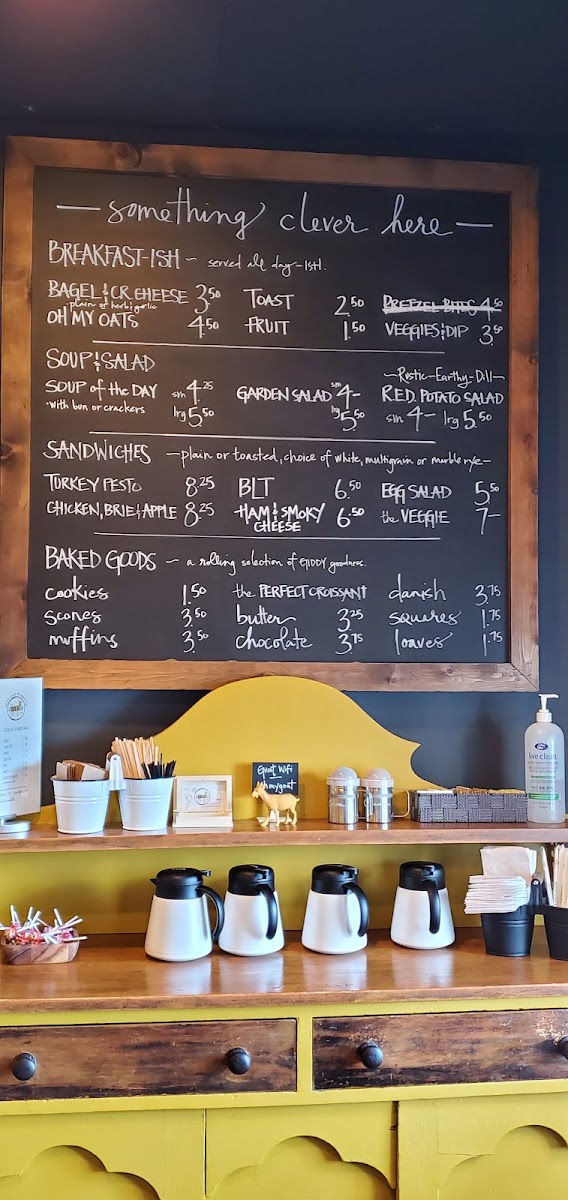 — something clever here —
BREAKFAST-ISH ~ served all day-ish!.
BAGEL & CR. CHEESE 3.50 TOAST 2.50 PRETZEL BITES 4.50
plain or herb & garlic
OH MY OATS 4.50 FRUIT 1.50 VEGGIES & DIP 3.50
SOUP & SALAD
~Rustic-Earthy-Dill~
SOUP of the DAY sm 4.25 GARDEN SALAD sm 4- R.E.D. POTATO SALAD
•with bun or crackers lrg 5.50 lg 5.50 sm 4- lrg 5.50
SANDWICHES —plain or toasted, choice of white, multigrain or marble rye—
TURKEY PESTO 8.25 BLT 6.50 EGG SALAD 5.50
CHICKEN, BRIE & APPLE 8.25 HAM & SMOKY CHEESE 6.50 the VEGGIE 7-
BAKED GOODS ~ a rolling selection of GIDDY goodness.
cookies 1.50 the PERFECT CROISSANT danish 3.75
scones 3.50 butter 3.25 squares 1.75
muffins 3.50 chocolate 3.75 loaves 1.75
Guest Wifi
live clean